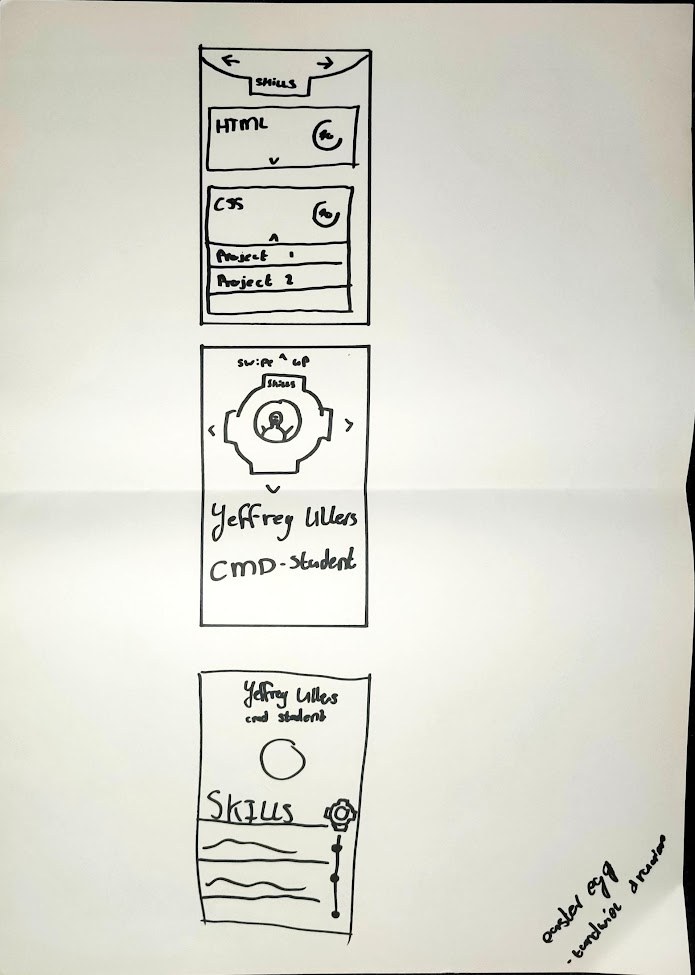 SKILLS
HTML
90
CSS
90
Project 1
Project 2
swipe ^ up
Skills
Jeffrey Ullers
CMD-Student
Jeffrey Ullers
cmd student
SKILLS
easter egg